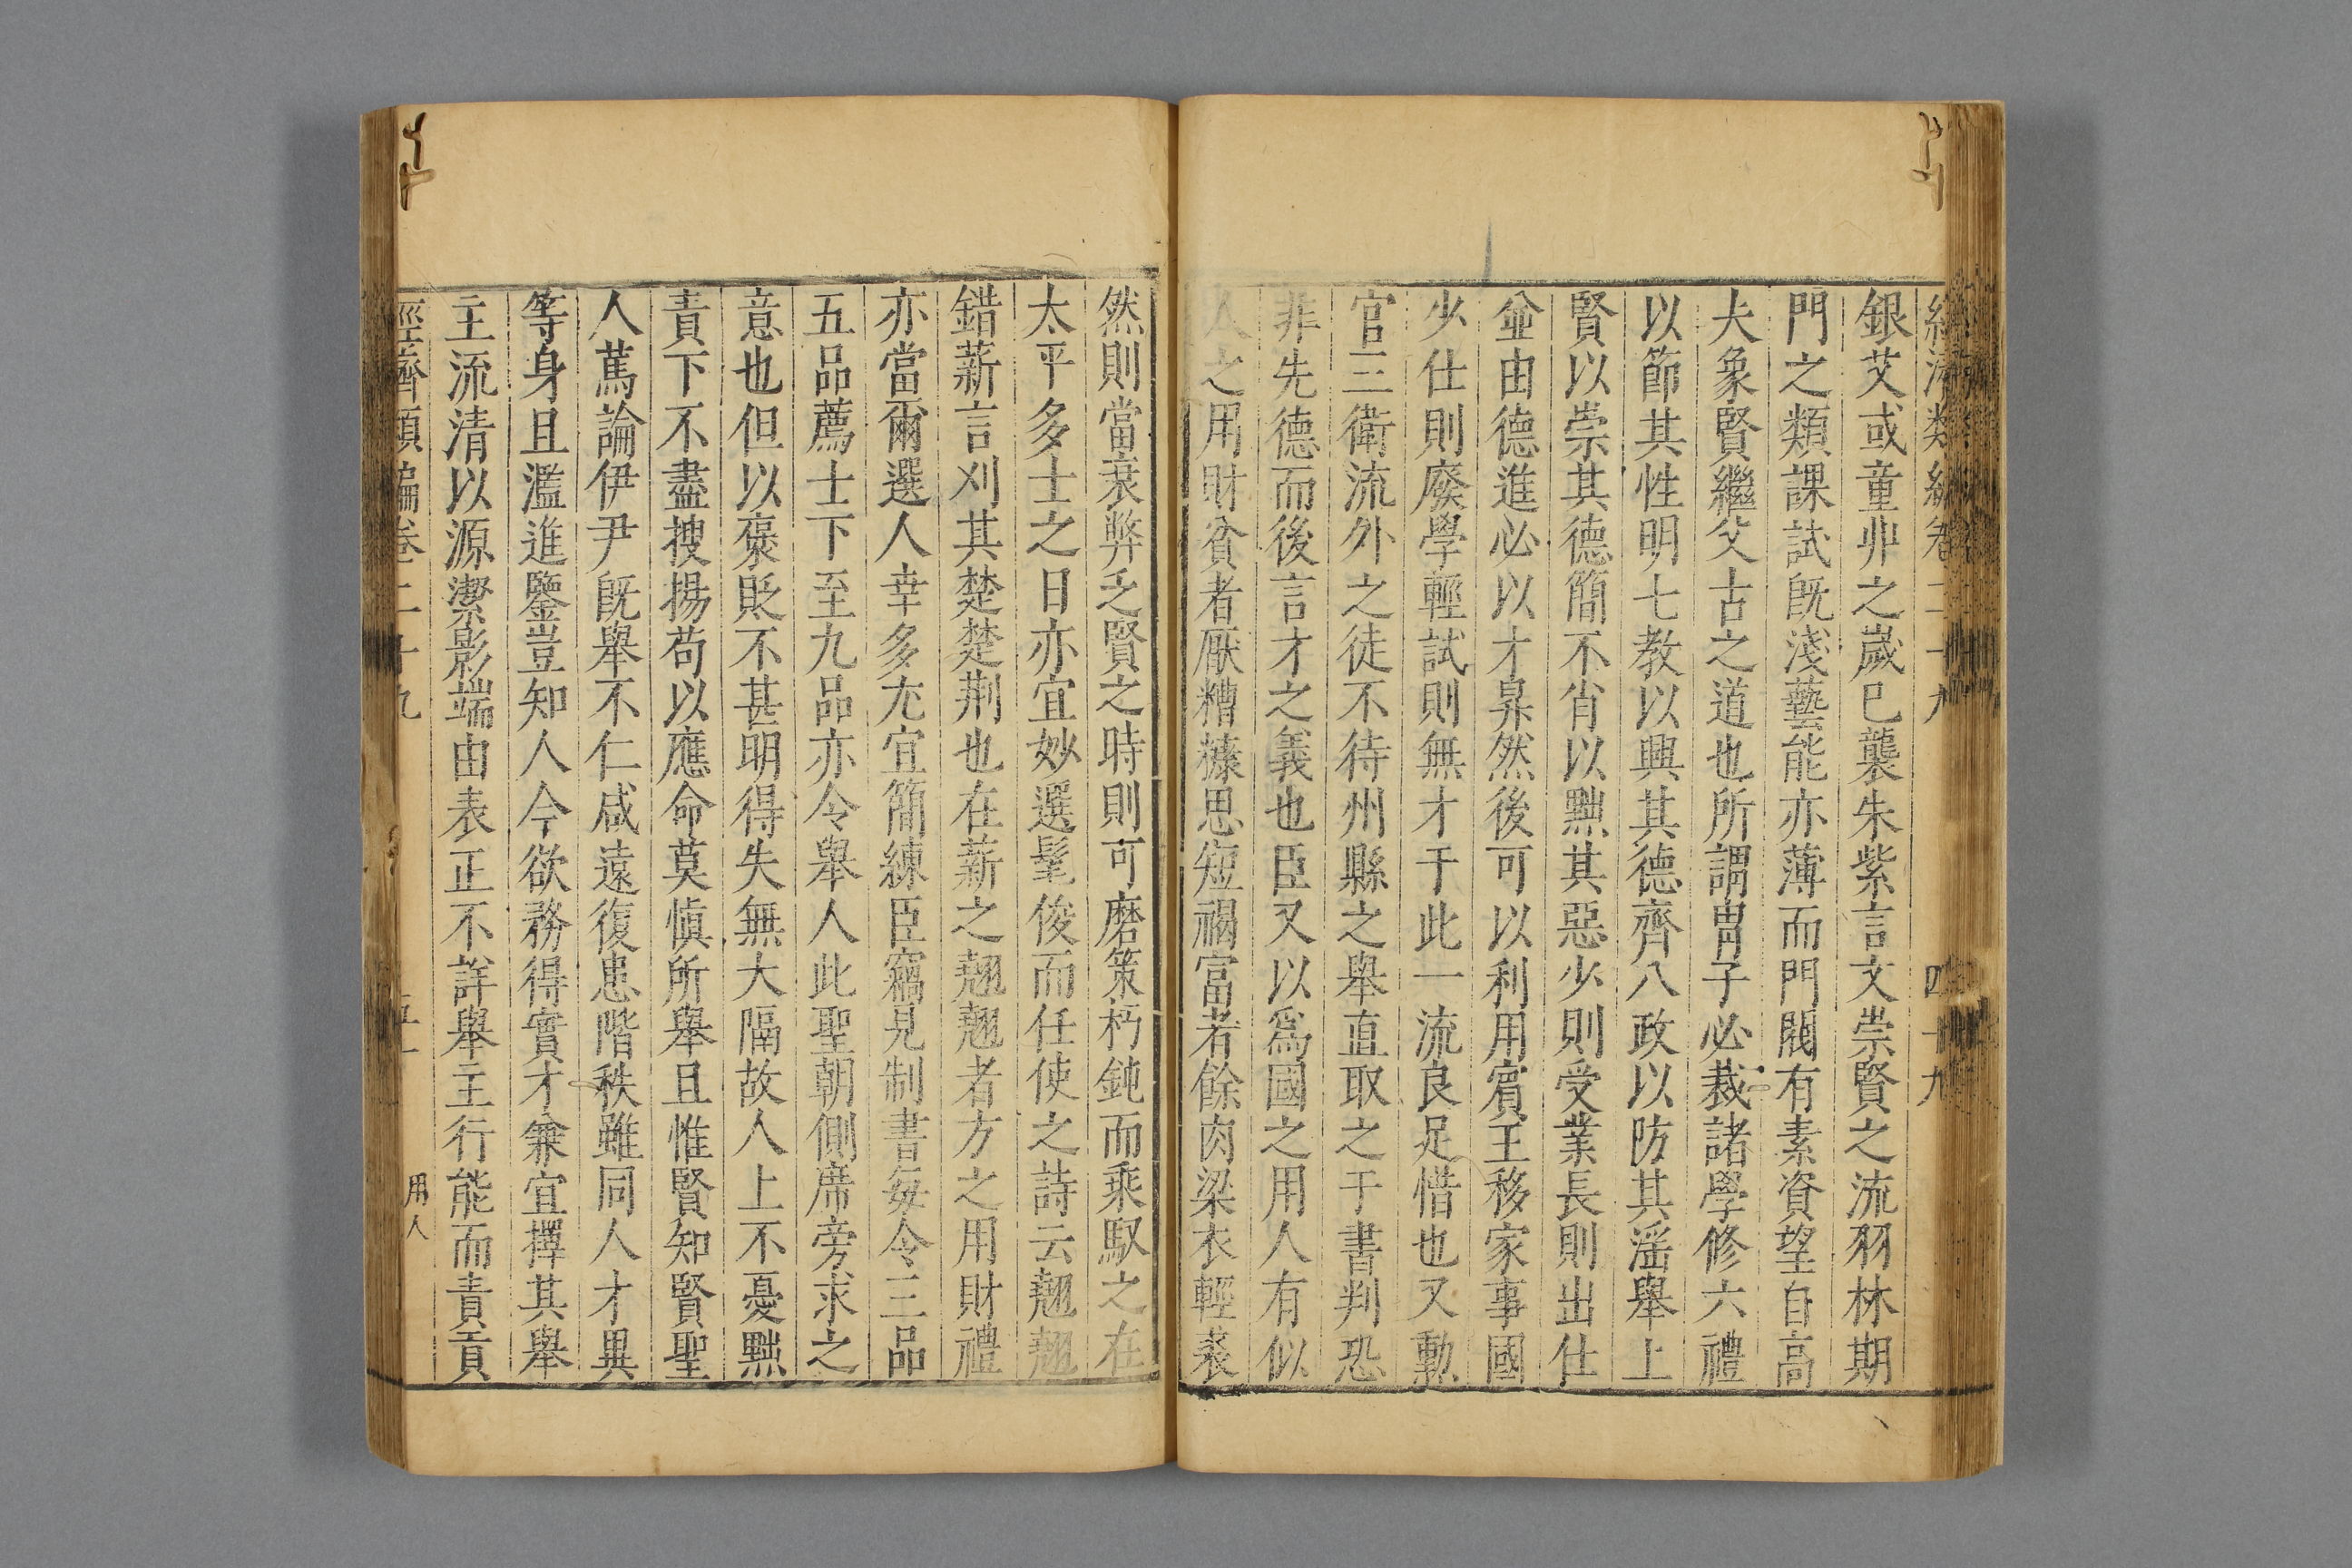 經濟類編卷二十九 四十九
銀艾或童丱之歲已襲朱紫言文崇賢之流羽林期
門之類課試旣淺藝能亦薄而門閥有素資望自高
夫象賢繼父古之道也所謂胄子必裁諸學修六禮
以節其性明七教以興其德齊八政以防其滛舉上
賢以崇其德簡不肖以黜其惡少則受業長則出仕
並由德進必以才昇然後可以利用賔王移家事國
少仕則廢學輕試則無才于此一流良足惜也又勳
官三衛流外之徒不待州縣之舉直取之于書判恐
非先德而後言才之義也臣又以爲國之用人有似
人之用財貧者厭糟糠思短褐富者餘肉梁衣輕裘
然則當衰弊乏賢之時則可磨策朽鈍而乘馭之在
太平多士之日亦宜妙選髦俊而任使之詩云翹翹
錯薪言刈其楚楚荆也在薪之翹翹者方之用財禮
亦當爾選人幸多尤宜簡練臣竊見制書每令三品
五品薦士下至九品亦令舉人此聖朝側席旁求之
意也但以褒貶不甚明得失無大隔故人上不憂黜
責下不盡搜揚苟以應命莫慎所舉且惟賢知賢聖
人篤論伊尹旣舉不仁咸遠復患階秩雖同人才異
等身且濫進鑒豈知人今欲務得實才兼宜擇其舉
主流清以源潔影端由表正不詳舉主行能而責貢
經濟類編卷二十九 五十 用人